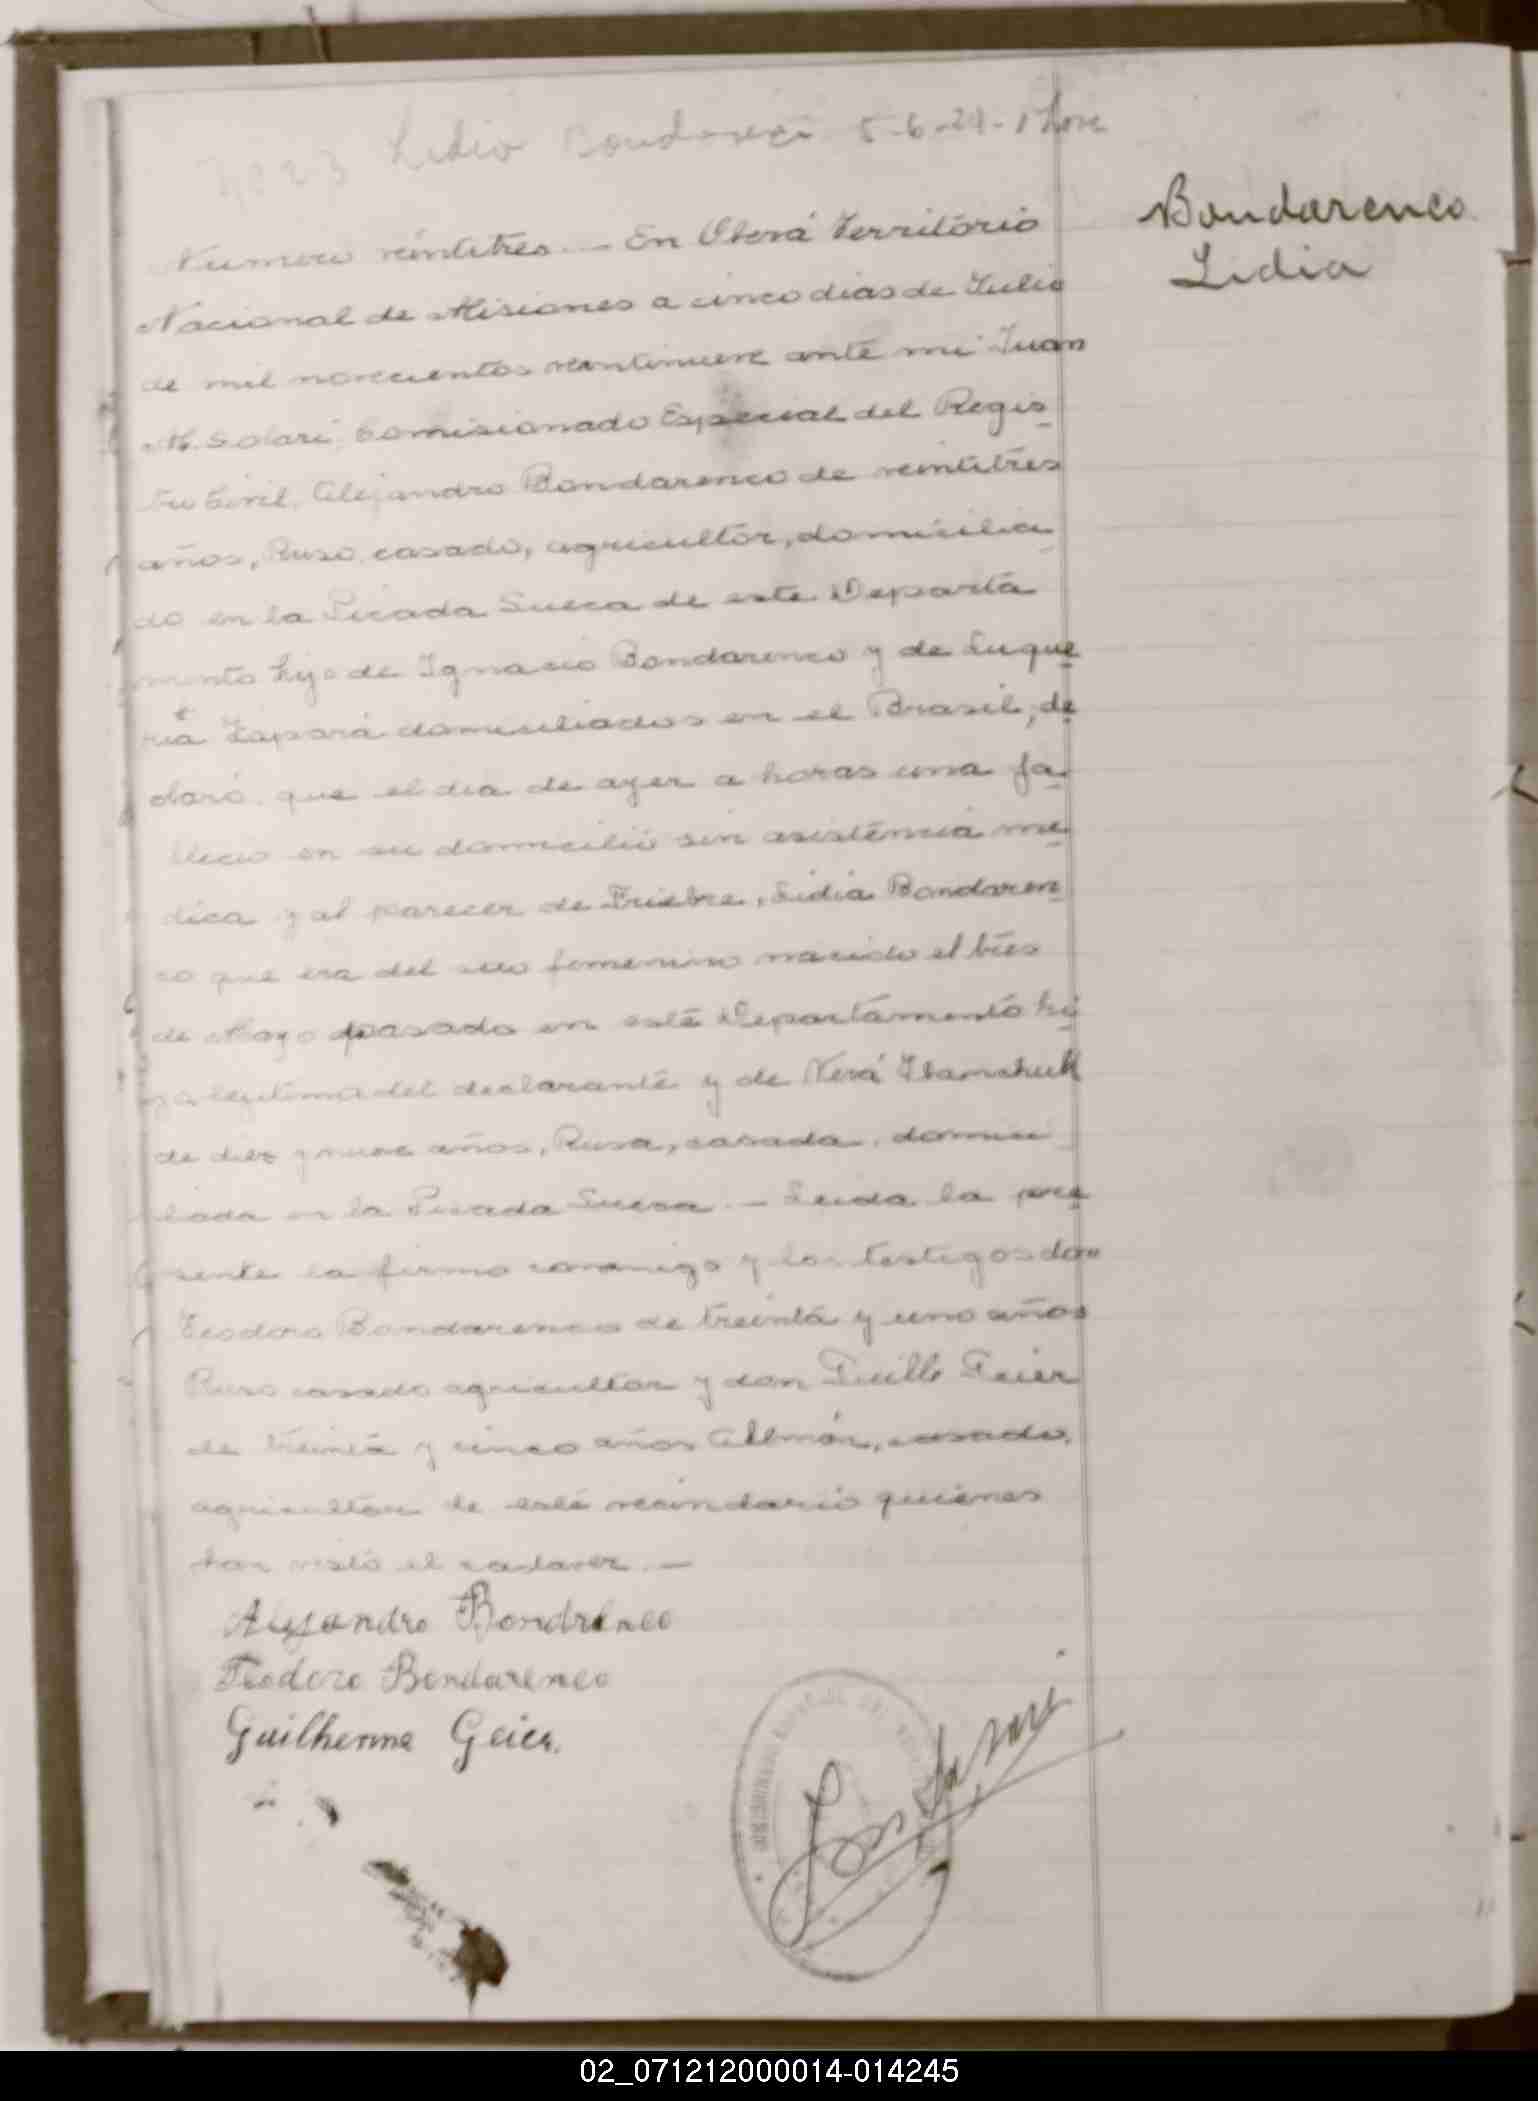 Lidia Bondarenco 5-6-29-1
Bondarenco
Lidia
Numero veintitres. — En Oberá Territorio
Nacional de Misiones a cinco dias de Julio
de mil novecientos veintinueve ante mi Juan
M. Solari, Comisionado Especial del Regis
tro Civil, Alejandro Bondarenco de veintitres
años, Ruso, casado, agricultor, domicilia
do en la Picada Sueca de este Departa
mento hijo de Ignacio Bondarenco y de Luque
ria Zapará domiciliados en el Brasil, de
claró que el dia de ayer a horas una fa
llecio en su domicilio sin asistencia me
dica y al parecer de Friebre, Lidia Bondaren
co que era del sexo femenino nacido el tres
de Mayo pasado en este Departamento hi
ja legitima del declarante y de Verá
de diez y nueve años, Rusa, casada, domici
liada en la Picada Sueca. — Leida la pre
sente la firma conmigo y los testigos don
Teodoro Bondarenco de treinta y uno años
Ruso casado agricultor y don
de treinta y cinco años Alemán, casado,
agricultor de este vecindario quienes
han visto el cadaver. —
Alejandro Bondrenco
Teodoro Bondarenco
Guilherme Geier.
02_071212000014-014245